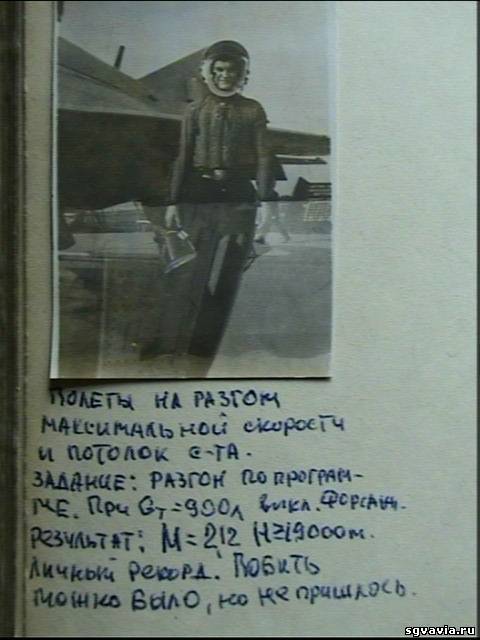 ПОЛЕТЫ НА РАЗГОН
МАКСИМАЛЬНОЙ СКОРОСТИ
И ПОТОЛОК С-ТА.
ЗАДАНИЕ: РАЗГОН ПО ПРОГРАМ-
МЕ. ПРИ Gт=900л ВЫКЛ. ФОРСАЖ.
РЕЗУЛЬТАТ: М=2,12 Н=19000м.
ЛИЧНЫЙ РЕКОРД. ПОБИТЬ
МОЖНО БЫЛО, НО НЕ ПРИШЛОСЬ.
sgvavia.ru